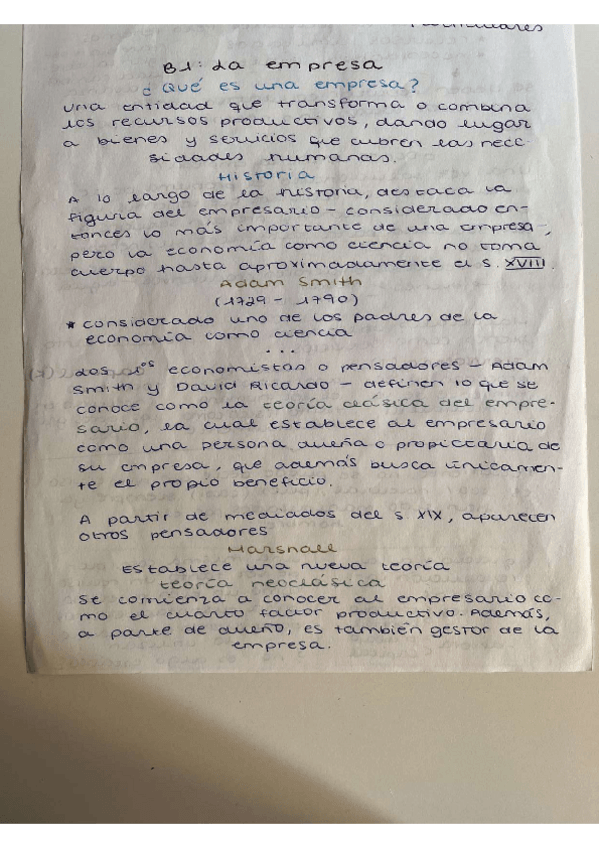 familiares
B1: La empresa
¿Qué es una empresa?
una entidad que transforma o combina
los recursos productivos, dando lugar
a bienes y servicios que cubren las nece-
sidades humanas.
Historia
A lo largo de la historia, destaca la
figura del empresario - considerado en-
tonces lo más importante de una empresa -,
pero la economía como ciencia no toma
cuerpo hasta aproximadamente el s. XVIII.
Adam Smith
(1729 - 1790)
* considerado uno de los padres de la
economía como ciencia
...
Los 1ºs economistas o pensadores - Adam
Smith y David Ricardo - definen lo que se
conoce como la teoría clásica del empre-
sario, la cual establece al empresario
como una persona dueña o propietaria de
su empresa, que además busca únicamen-
te el propio beneficio.
A partir de mediados del s XIX, aparecen
otros pensadores
Marshall
Establece una nueva teoría
teoría neoclásica
Se comienza a conocer al empresario co-
mo el cuarto factor productivo. Además,
a parte de dueño, es también gestor de la
empresa.